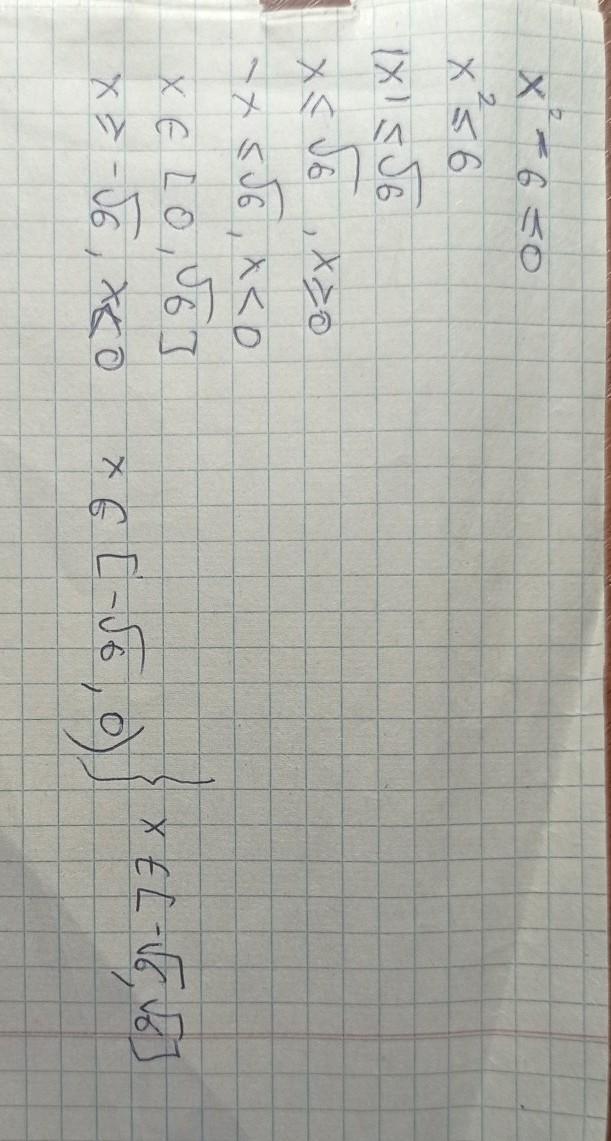 x² - 6 ≤ 0
x² ≤ 6
|x| ≤ √6
x ≤ √6, x ≥ 0
-x ≤ √6, x < 0
x ∈ [0, √6]
x ≥ -√6, x < 0 x ∈ [-√6, 0) } x ∈ [-√6, √6]